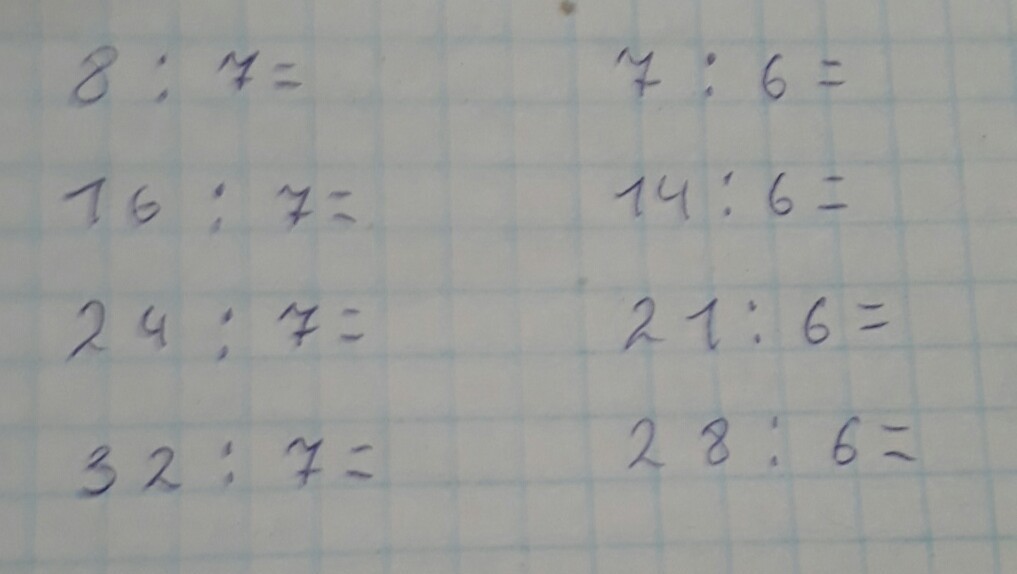 8 : 7 =
16 : 7 =
24 : 7 =
32 : 7 =
7 : 6 =
14 : 6 =
21 : 6 =
28 : 6 =